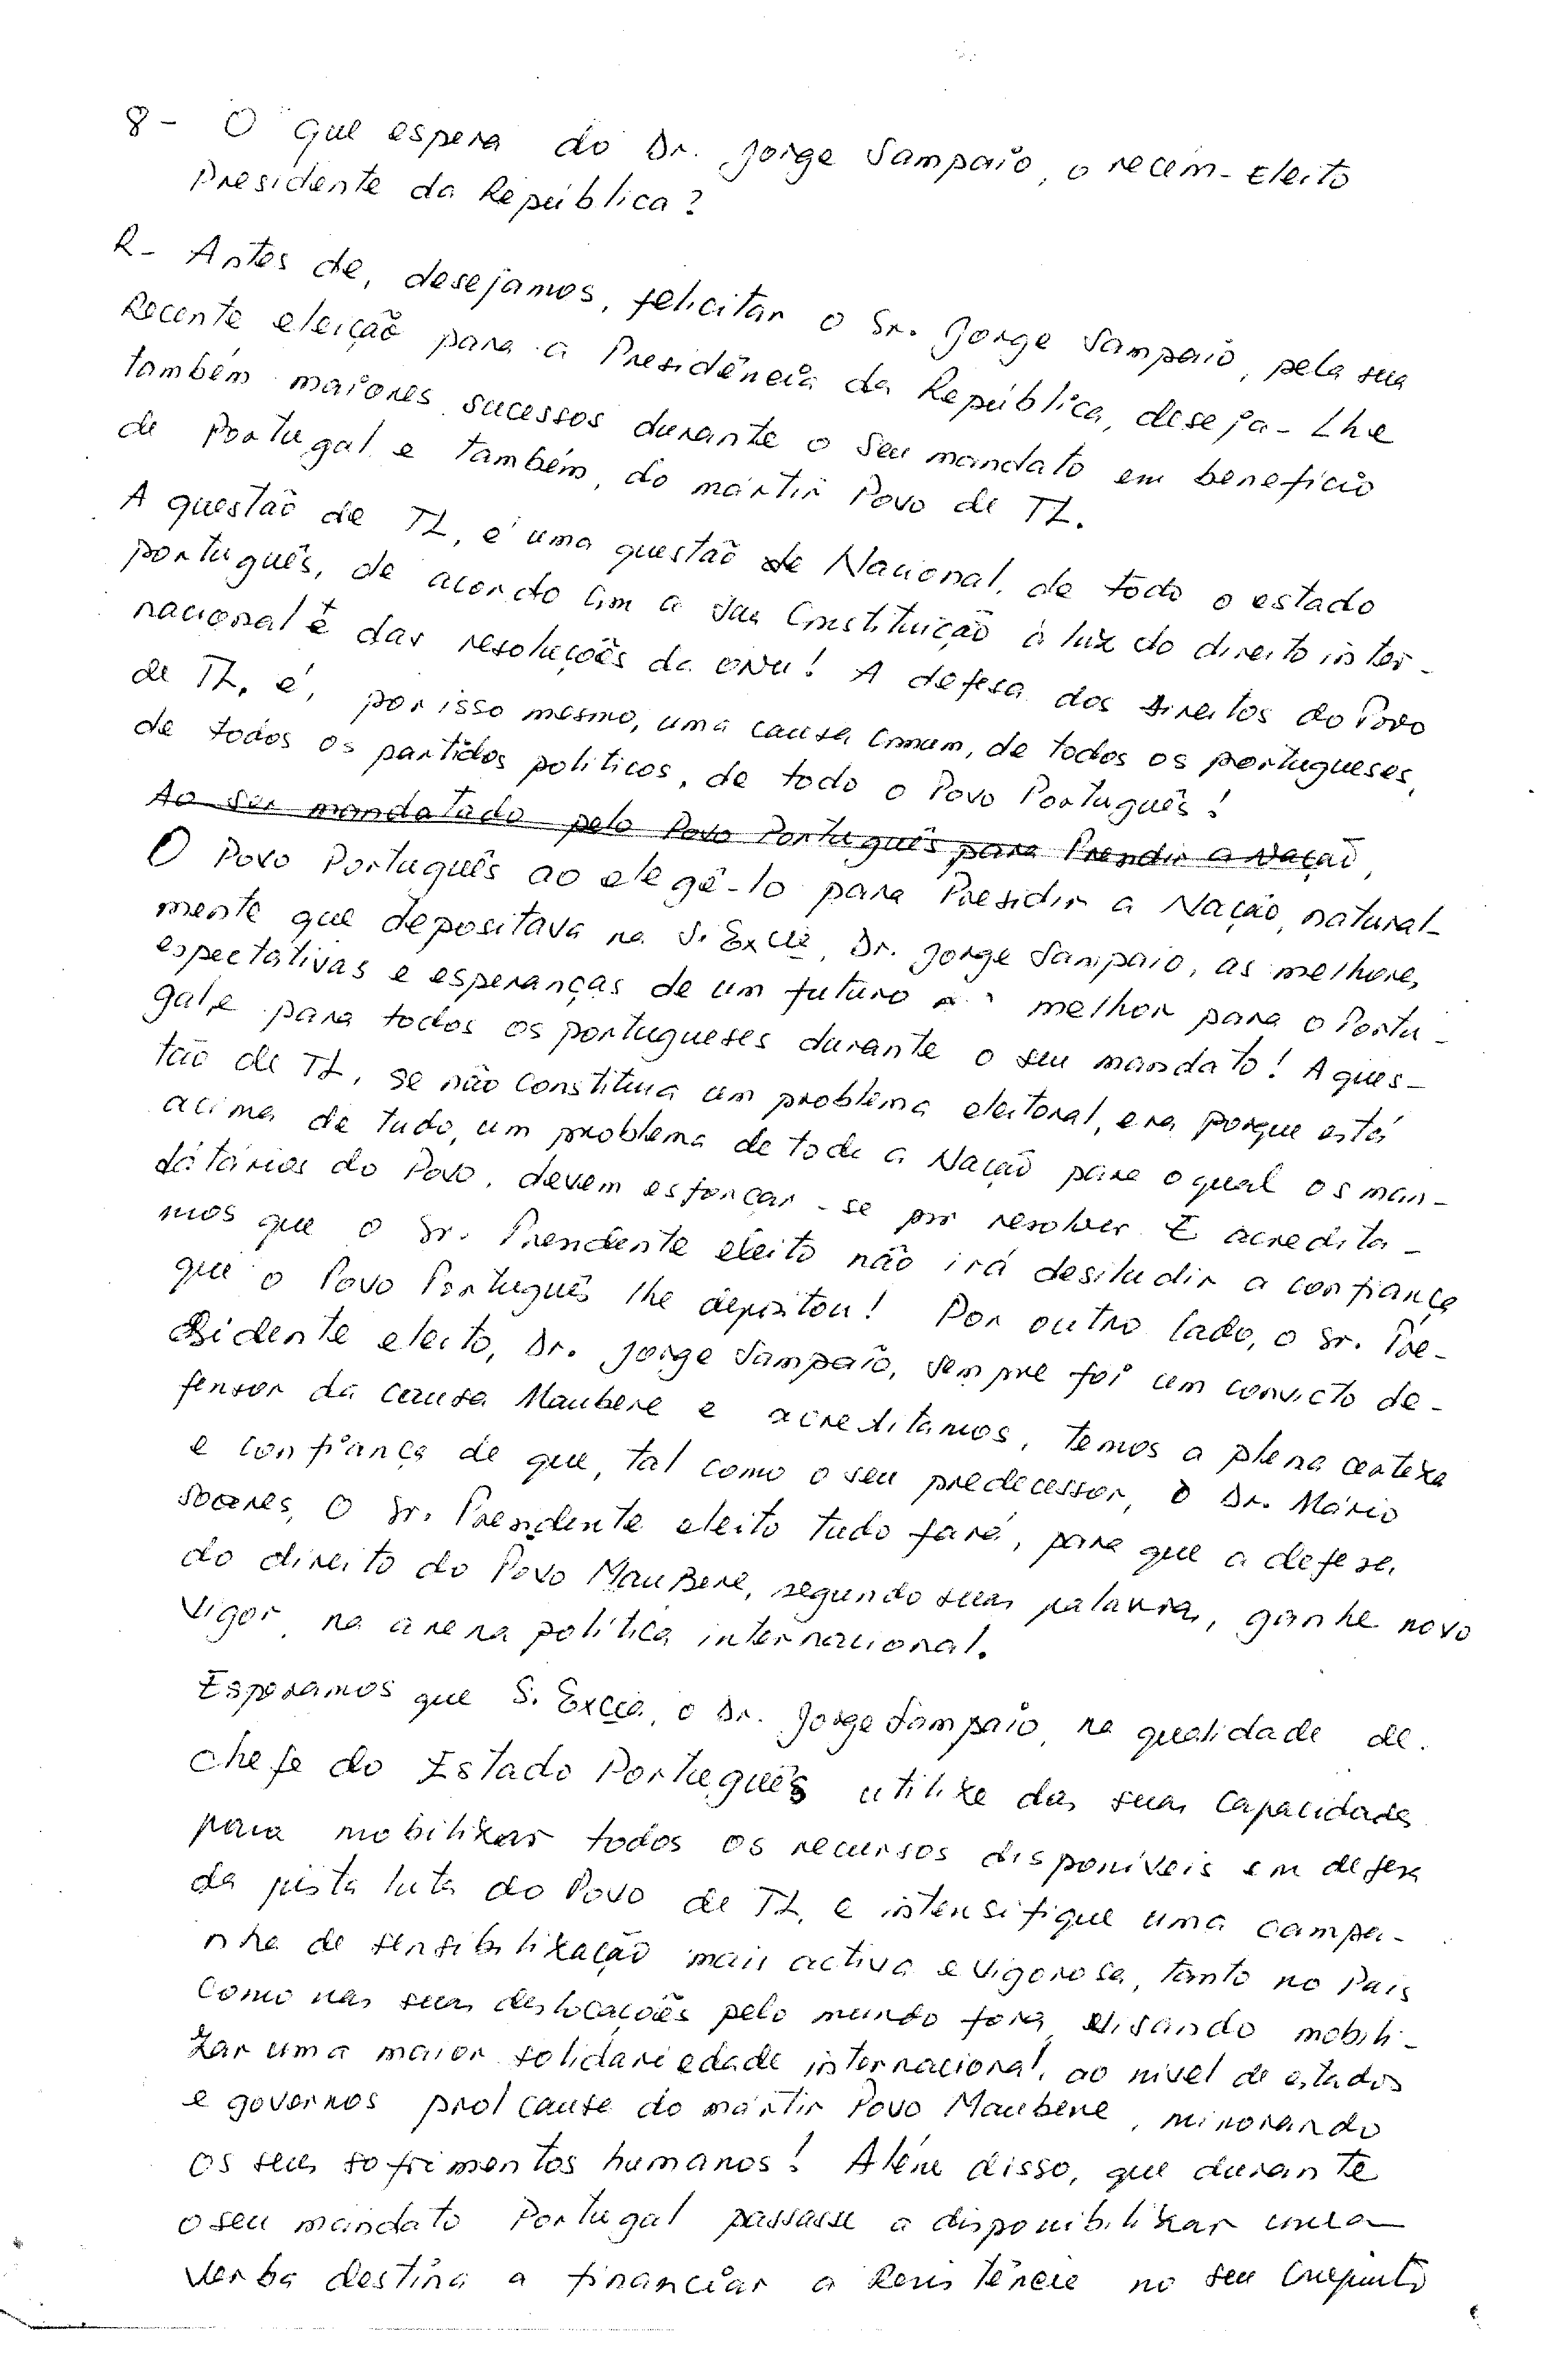 8 - O que espera do Dr. Jorge Sampaio, o recém-eleito
Presidente da República?
R- Antes de, desejamos, felicitar o Sr. Jorge Sampaio, pela sua
Recente eleição para a Presidência da República, deseja-Lhe
também maiores sucessos durante o seu mandato em benefício
de Portugal e também, do mártir Povo de TL.
A questão de TL, é uma questão de Nacional, de todo o estado
português, de acordo com a sua Constituição à luz do direito inter-
nacional e das resoluções da ONU! A defesa dos direitos do Povo
de TL, é, por isso mesmo, uma causa comum, de todos os portugueses,
de todos os partidos políticos, de todo o Povo Português!
Ao ser mandatado pelo Povo Português para Presidir a Nação,
O Povo Português ao elegê-lo para Presidir a Nação, natural-
mente que depositava na S. Excia, Dr. Jorge Sampaio, as melhores
espectativas e esperanças de um futuro melhor para o Portu-
gal, e para todos os portugueses durante o seu mandato! A ques-
tão de TL, se não constituia um problema eleitoral, era porque está
acima de tudo, um problema de toda a Nação para o qual os man-
dátários do Povo, devem esforçar-se por resolver. E acredita-
mos que o Sr. Presidente eleito não irá desiludir a confiança
que o Povo Português lhe depositou! Por outro lado, o Sr. Pre-
sidente eleito, Dr. Jorge Sampaio, sempre foi um convicto de-
fensor da causa Maubere e acreditamos, temos a plena certeza
e confiança de que, tal como o seu predecessor, o Dr. Mário
Soares, O Sr. Presidente eleito tudo fará, para que a defesa
do direito do Povo MauBere, segundo suas palavras, ganhe novo
vigor na arena política internacional.
Esperamos que S. Excia, o Dr. Jorge Sampaio, na qualidade de
chefe do Estado Português utilize das suas capacidades
para mobilizar todos os recursos disponíveis em defesa
da justa luta do Povo de TL, e intensifique uma campa-
nha de sensibilização mais activa e vigorosa, tanto no País
como nas suas deslocações pelo mundo fora, visando mobili-
zar uma maior solidariedade internacional, ao nível de estados
e governos prol causa do mártir Povo Maubere, minorando
os seus sofrimentos humanos! Além disso, que durante
o seu mandato Portugal passasse a disponibilizar uma
verba destina a financiar a Resistência no seu conjunto